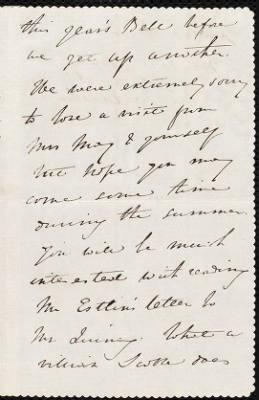 this year's Bell before
we get up another.
We were extremely sorry
to lose a visit from
Mrs May & yourself
but hope you may
come some time
during the summer.
You will be much
interested with reading
Mr Estlin's letter to
Mr Quincy. What a
Scoble does